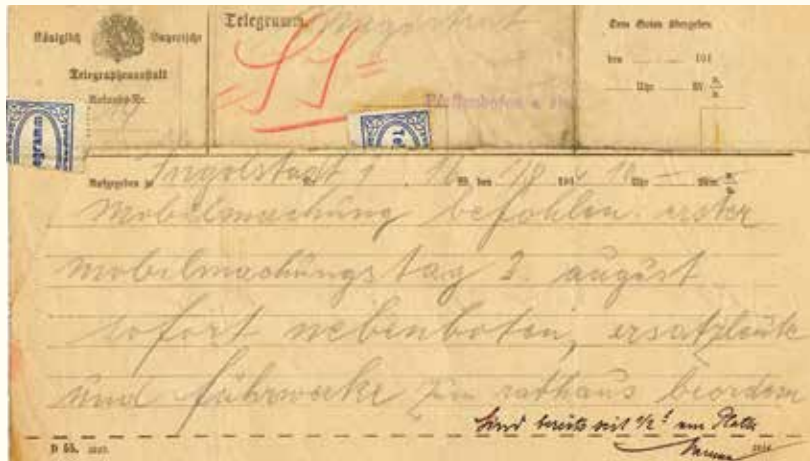 Königlich Bayerische
Telegraphenanstalt
Telegramm.
Magistrat
= SS =
Pfaffenhofen a.
Dem Boten übergeben
den 191
Uhr M.
Telegramm
Aufgegeben zu Ingolstadt 1 Nr. W. den 1/8 191 Uhr Min.
mobilmachung befohlen. erster
mobilmachungstag 2. august
sofort nebenboten, ersatzleute
und fuhrwerke zum rathaus beordern
Sind bereits seit 1/2 am Platze